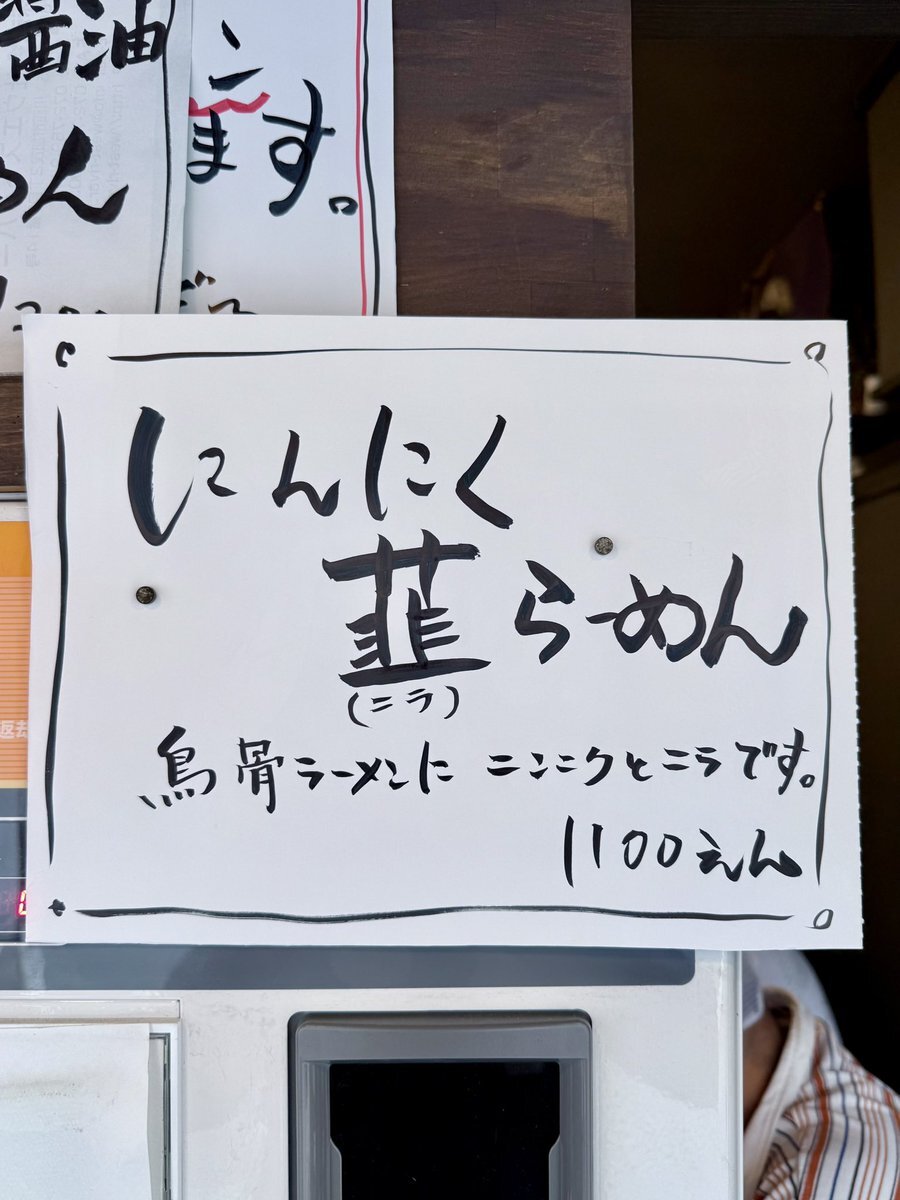 醤油
めん
ます。
にんにく
韮らーめん
(ニラ)
鳥骨ラーメンに ニンニクとニラです。
1100えん
返却